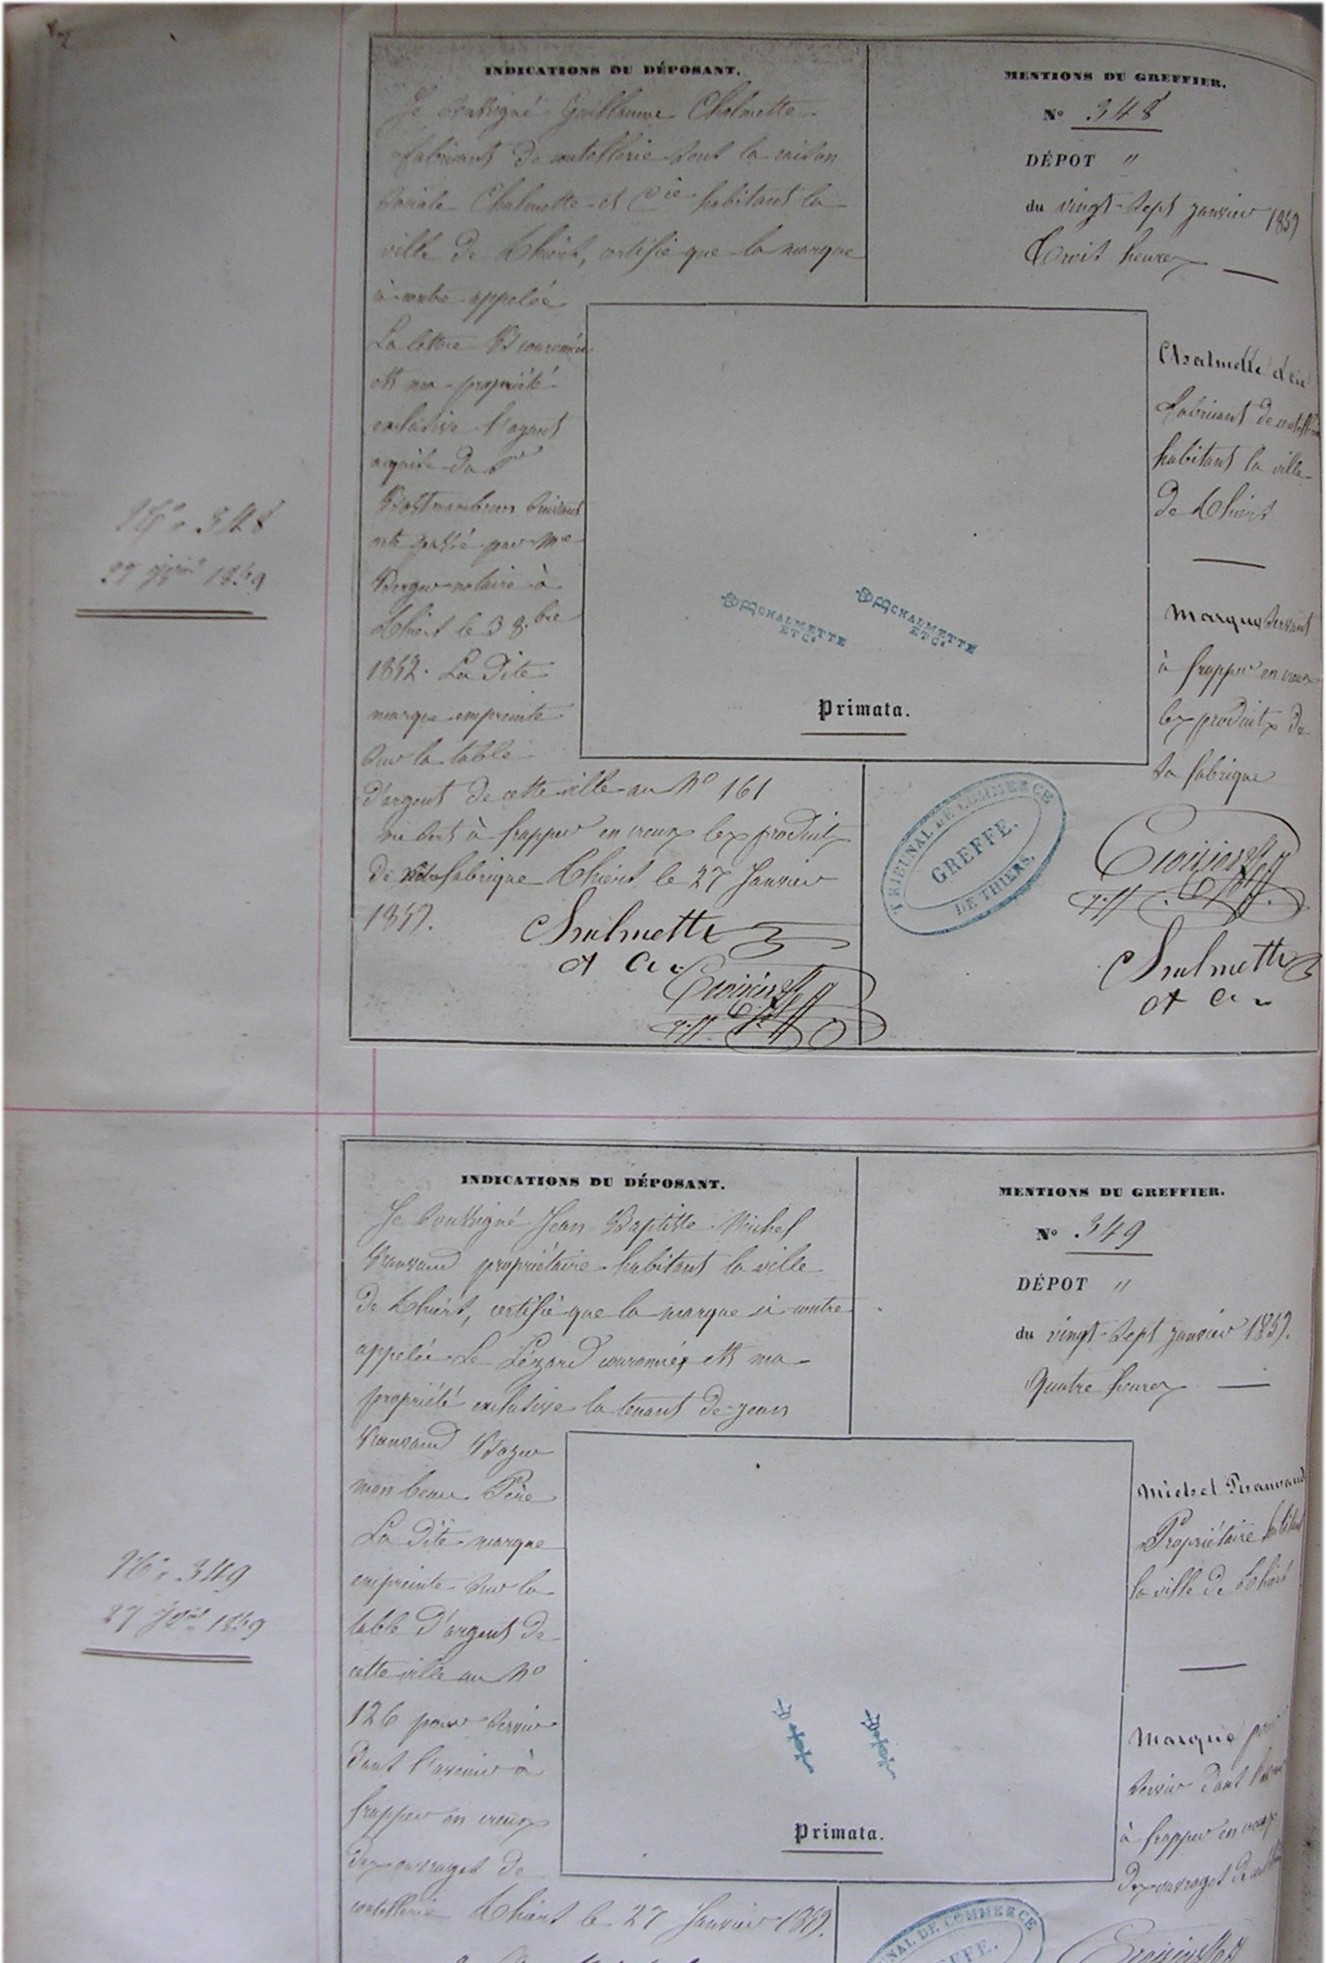 INDICATIONS DU DÉPOSANT.
Je soussigné Guillaume Chalmette
fabricant de coutellerie sous la raison
sociale Chalmette et Cie habitant la
ville de Thiers, certifie que la marque
ci-contre appelée
La lettre B couronnée
est ma propriété
exclusive l'ayant
acquise du Sr
suivant
acte passé par Me
notaire à
Thiers le 3 8.bre
1852. La dite
marque empreinte
sur la table
d'argent de cette ville au No 161
me sert à frapper en creux les produits
de fabrique Thiers le 27 Janvier
1859.
Chalmette
et Cie
MENTIONS DU GREFFIER.
No 348
DÉPOT "
du vingt-sept janvier 1859
Trois heures
CHALMETTE
ET Cie
CHALMETTE
ET Cie
Primata.
Chalmette et cie
fabricant de coutellerie
habitant la ville
de Thiers
Marque servant
à frapper en creux
les produits de
sa fabrique
TRIBUNAL DE COMMERCE
GREFFE.
DE THIERS.
Chalmette
et Cie
No. 348
27 jer 1859
INDICATIONS DU DÉPOSANT.
Je soussigné Jean-Baptiste Michel
propriétaire habitant la ville
de Thiers, certifie que la marque ci contre
appelée Le Lézard couronné est ma
propriété exclusive la tenant de Jean
mon beau Père
La dite marque
empreinte sur la
table d'argent de
cette ville au No
126 pour servir
dans l'avenir à
frapper en creux
des ouvrages de
coutellerie Thiers le 27 Janvier 1859.
MENTIONS DU GREFFIER.
No 349
DÉPOT "
du vingt-sept janvier 1859.
Quatre heures
Primata.
Michel
Propriétaire habitant
la ville de Thiers
Marque pour
servir dans l'avenir
à frapper en creux
des ouvrages de
No. 349
27 jer 1859